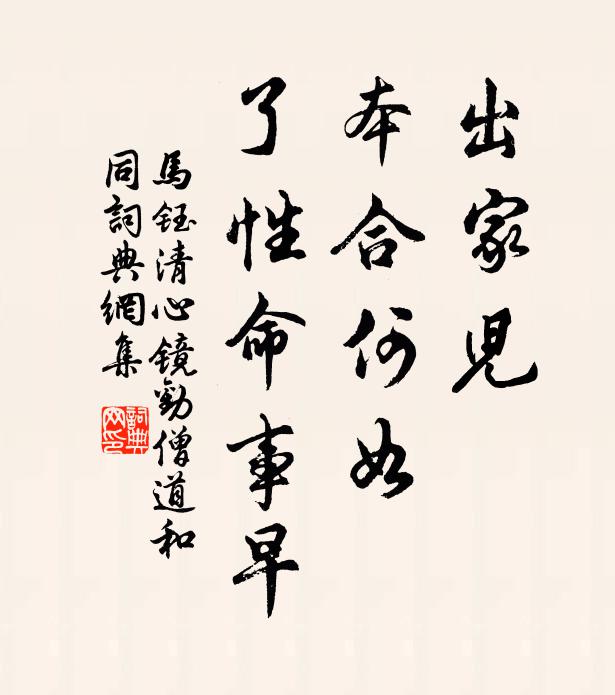 出家児
本合何如
了性命事早
馬鈺清心鏡勸僧道和
同詞典網集
詞典
网印